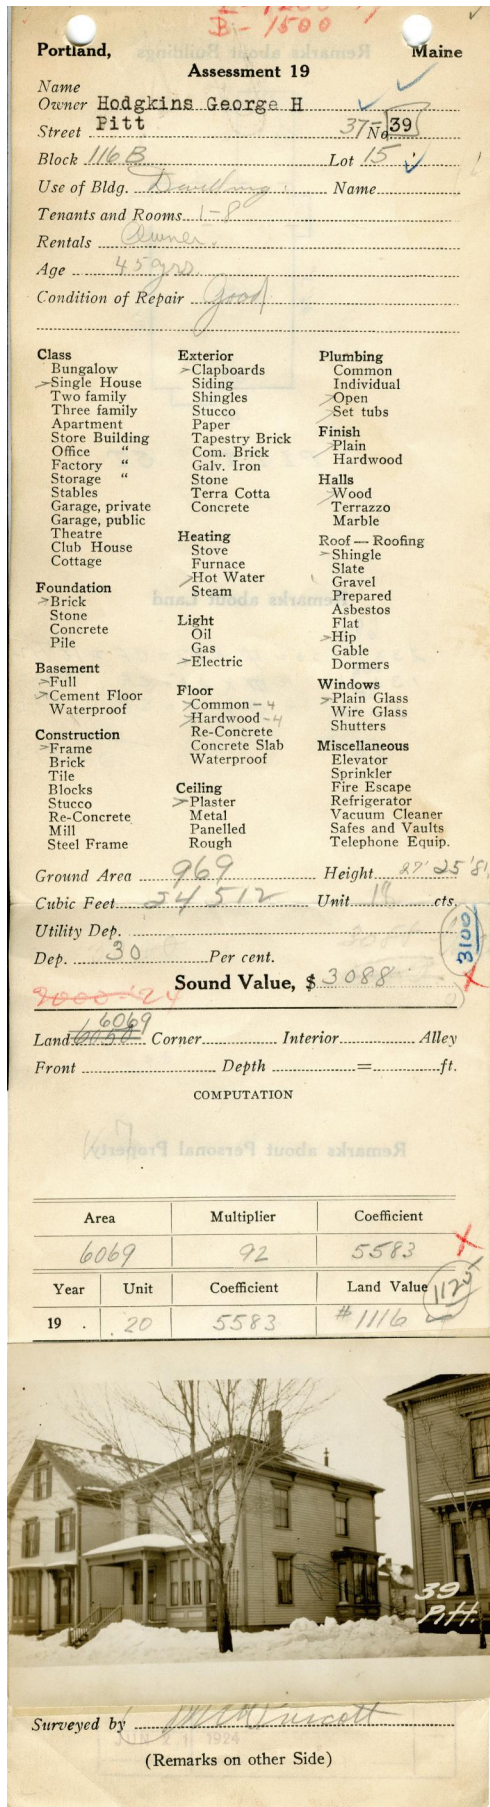 Bi- 1500
Portland, Maine
Assessment 19
Name
Owner Hodgkins George H
Street Pitt 37- No. 39
Block 116B Lot 15
Use of Bldg. Dwelling. Name
Tenants and Rooms 1-8
Rentals Owner.
Age 45 yrs.
Condition of Repair Good
Class
Bungalow
>Single House
Two family
Three family
Apartment
Store Building
Office "
Factory "
Storage "
Stables
Garage, private
Garage, public
Theatre
Club House
Cottage
Foundation
>Brick
Stone
Concrete
Pile
Basement
>Full
>Cement Floor
Waterproof
Construction
>Frame
Brick
Tile
Blocks
Stucco
Re-Concrete
Mill
Steel Frame
Exterior
>Clapboards
Siding
Shingles
Stucco
Paper
Tapestry Brick
Com. Brick
Galv. Iron
Stone
Terra Cotta
Concrete
Heating
Stove
Furnace
>Hot Water
Steam
Light
Oil
Gas
>Electric
Floor
>Common - 4
>Hardwood - 4
Re-Concrete
Concrete Slab
Waterproof
Ceiling
>Plaster
Metal
Panelled
Rough
Plumbing
Common
Individual
>Open
>Set tubs
Finish
>Plain
Hardwood
Halls
>Wood
Terrazzo
Marble
Roof — Roofing
>Shingle
Slate
Gravel
Prepared
Asbestos
Flat
>Hip
Gable
Dormers
Windows
>Plain Glass
Wire Glass
Shutters
Miscellaneous
Elevator
Sprinkler
Fire Escape
Refrigerator
Vacuum Cleaner
Safes and Vaults
Telephone Equip.
Ground Area 969 Height 27' 25' 8'
Cubic Feet 24 512 Unit 18 cts.
Utility Dep.
3100
Dep. 30 Per cent.
Sound Value, $ 3088
6069
Land 6050 Corner Interior Alley
Front Depth = ft.
COMPUTATION
Area Multiplier Coefficient
6069 92 5583
Year Unit Coefficient Land Value 1125
19 . 20 5583 #1116
39
Pitt.
Surveyed by
JUN 21 1924
(Remarks on other Side)